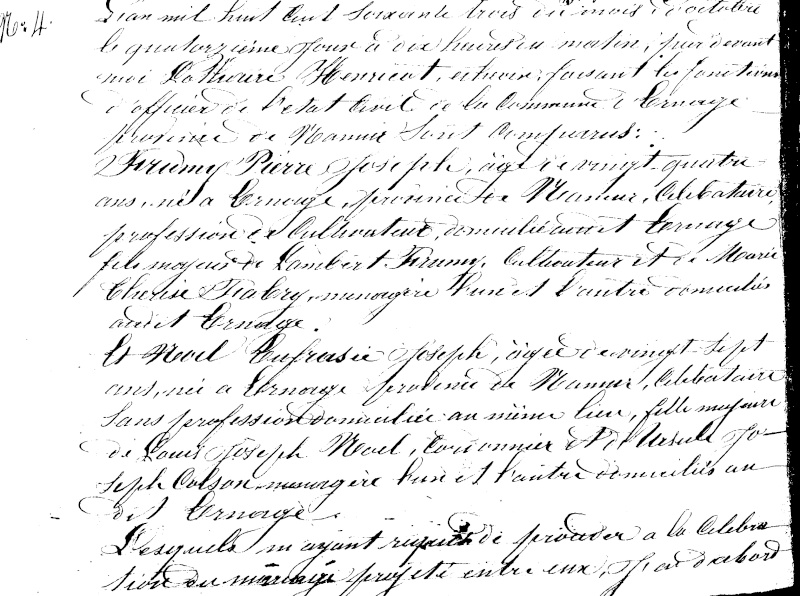 N: 4.
L'an mil huit cent soixante trois du mois d'octobre
le quatorzième jour à dix heures du matin, par devant
moi Henricot, échevin, faisant les fonctions
d'officier de l'état Civil de la Commune d'Ernage
province de Namur Sont Comparus:
Firumy Pierre Joseph, âgé de vingt-quatre
ans, né à Ernage, province de Namur, Célibataire,
profession de Cultivateur, domicilié au dit Ernage
fils majeur de Lambert Firumy, Cultivateur et de Marie
Therèse, menagère l'un et l'autre domiciliés
au dit Ernage.
Et Noel Eufrasie Joseph, âgée de vingt-sept
ans, née à Ernage province de Namur, Célibataire
Sans profession domiciliée au même lieu, fille majeure
de Louis Joseph Noel, Cordonnier et d'Ursule Jo-
seph Colson menagère l'un et l'autre domiciliés au
dit Ernage.
Lesquels m'ayant requis de procéder a la Célébra
tion du mariage projeté entre eux, d'abord